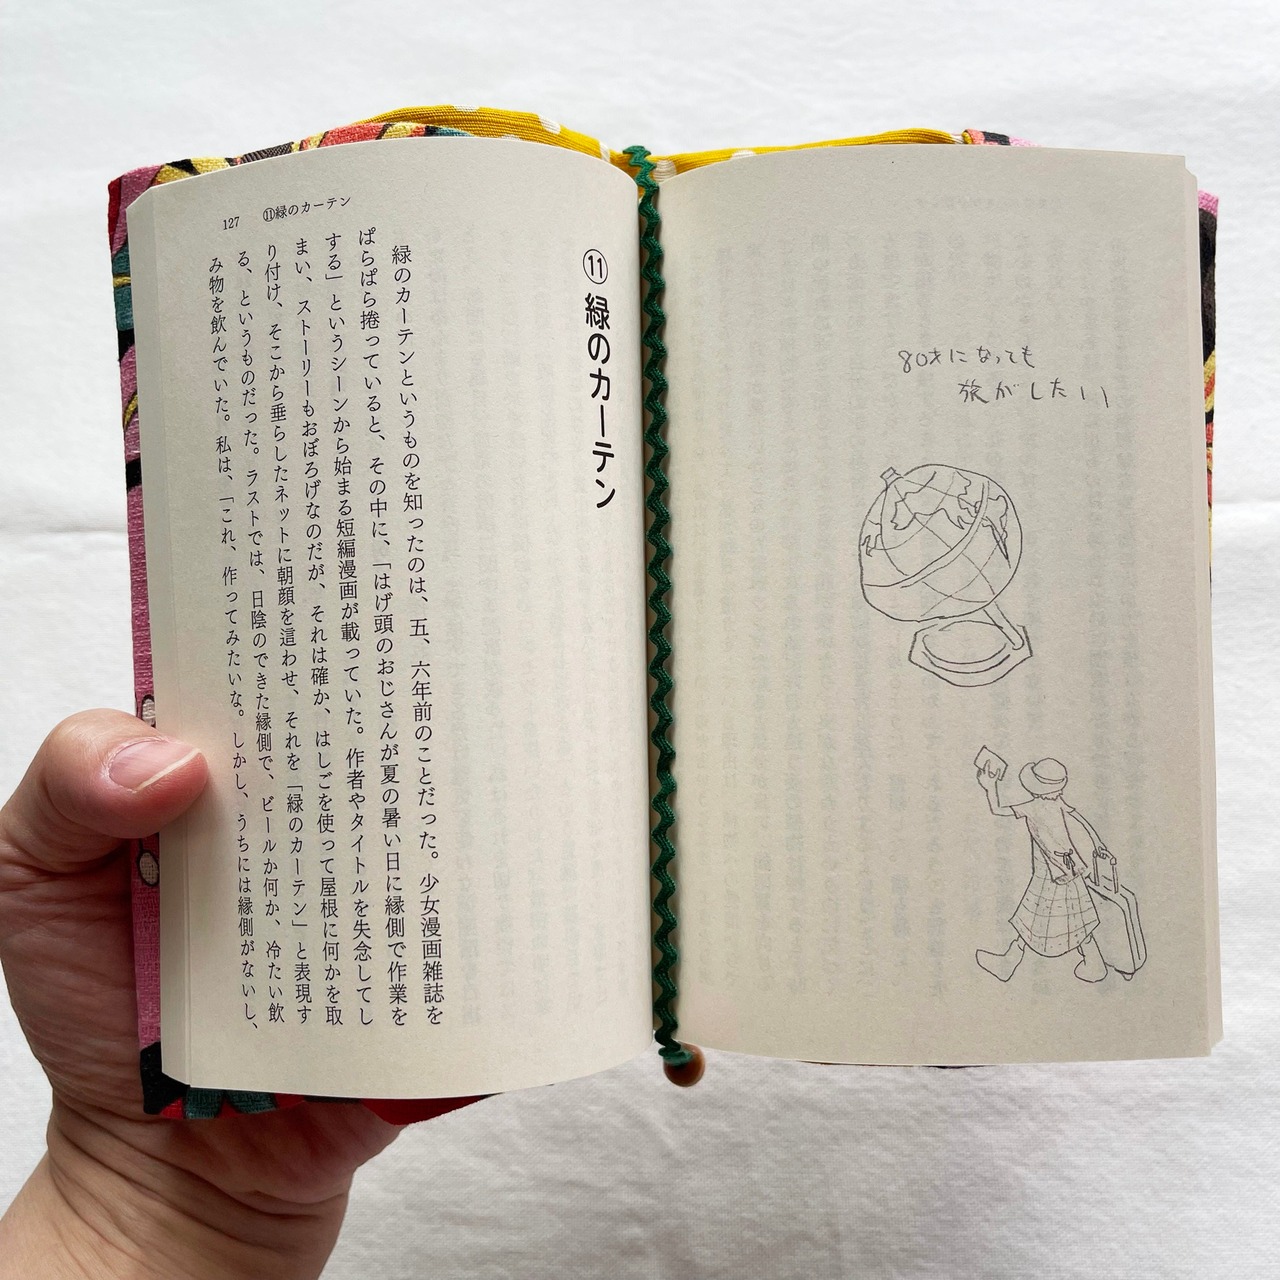 80才になっても
旅がしたい
⑪緑のカーテン
緑のカーテンというものを知ったのは、五、六年前のことだった。少女漫画雑誌を
ぱらぱら捲っていると、その中に、「はげ頭のおじさんが夏の暑い日に縁側で作業を
する」というシーンから始まる短編漫画が載っていた。作者やタイトルを失念してし
まい、ストーリーもおぼろげなのだが、それは確か、はしごを使って屋根に何かを取
り付け、そこから垂らしたネットに朝顔を這わせ、それを「緑のカーテン」と表現す
る、というものだった。ラストでは、日陰のできた縁側で、ビールか何か、冷たい飲
み物を飲んでいた。私は、「これ、作ってみたいな。しかし、うちには縁側がないし、
127 ⑪緑のカーテン